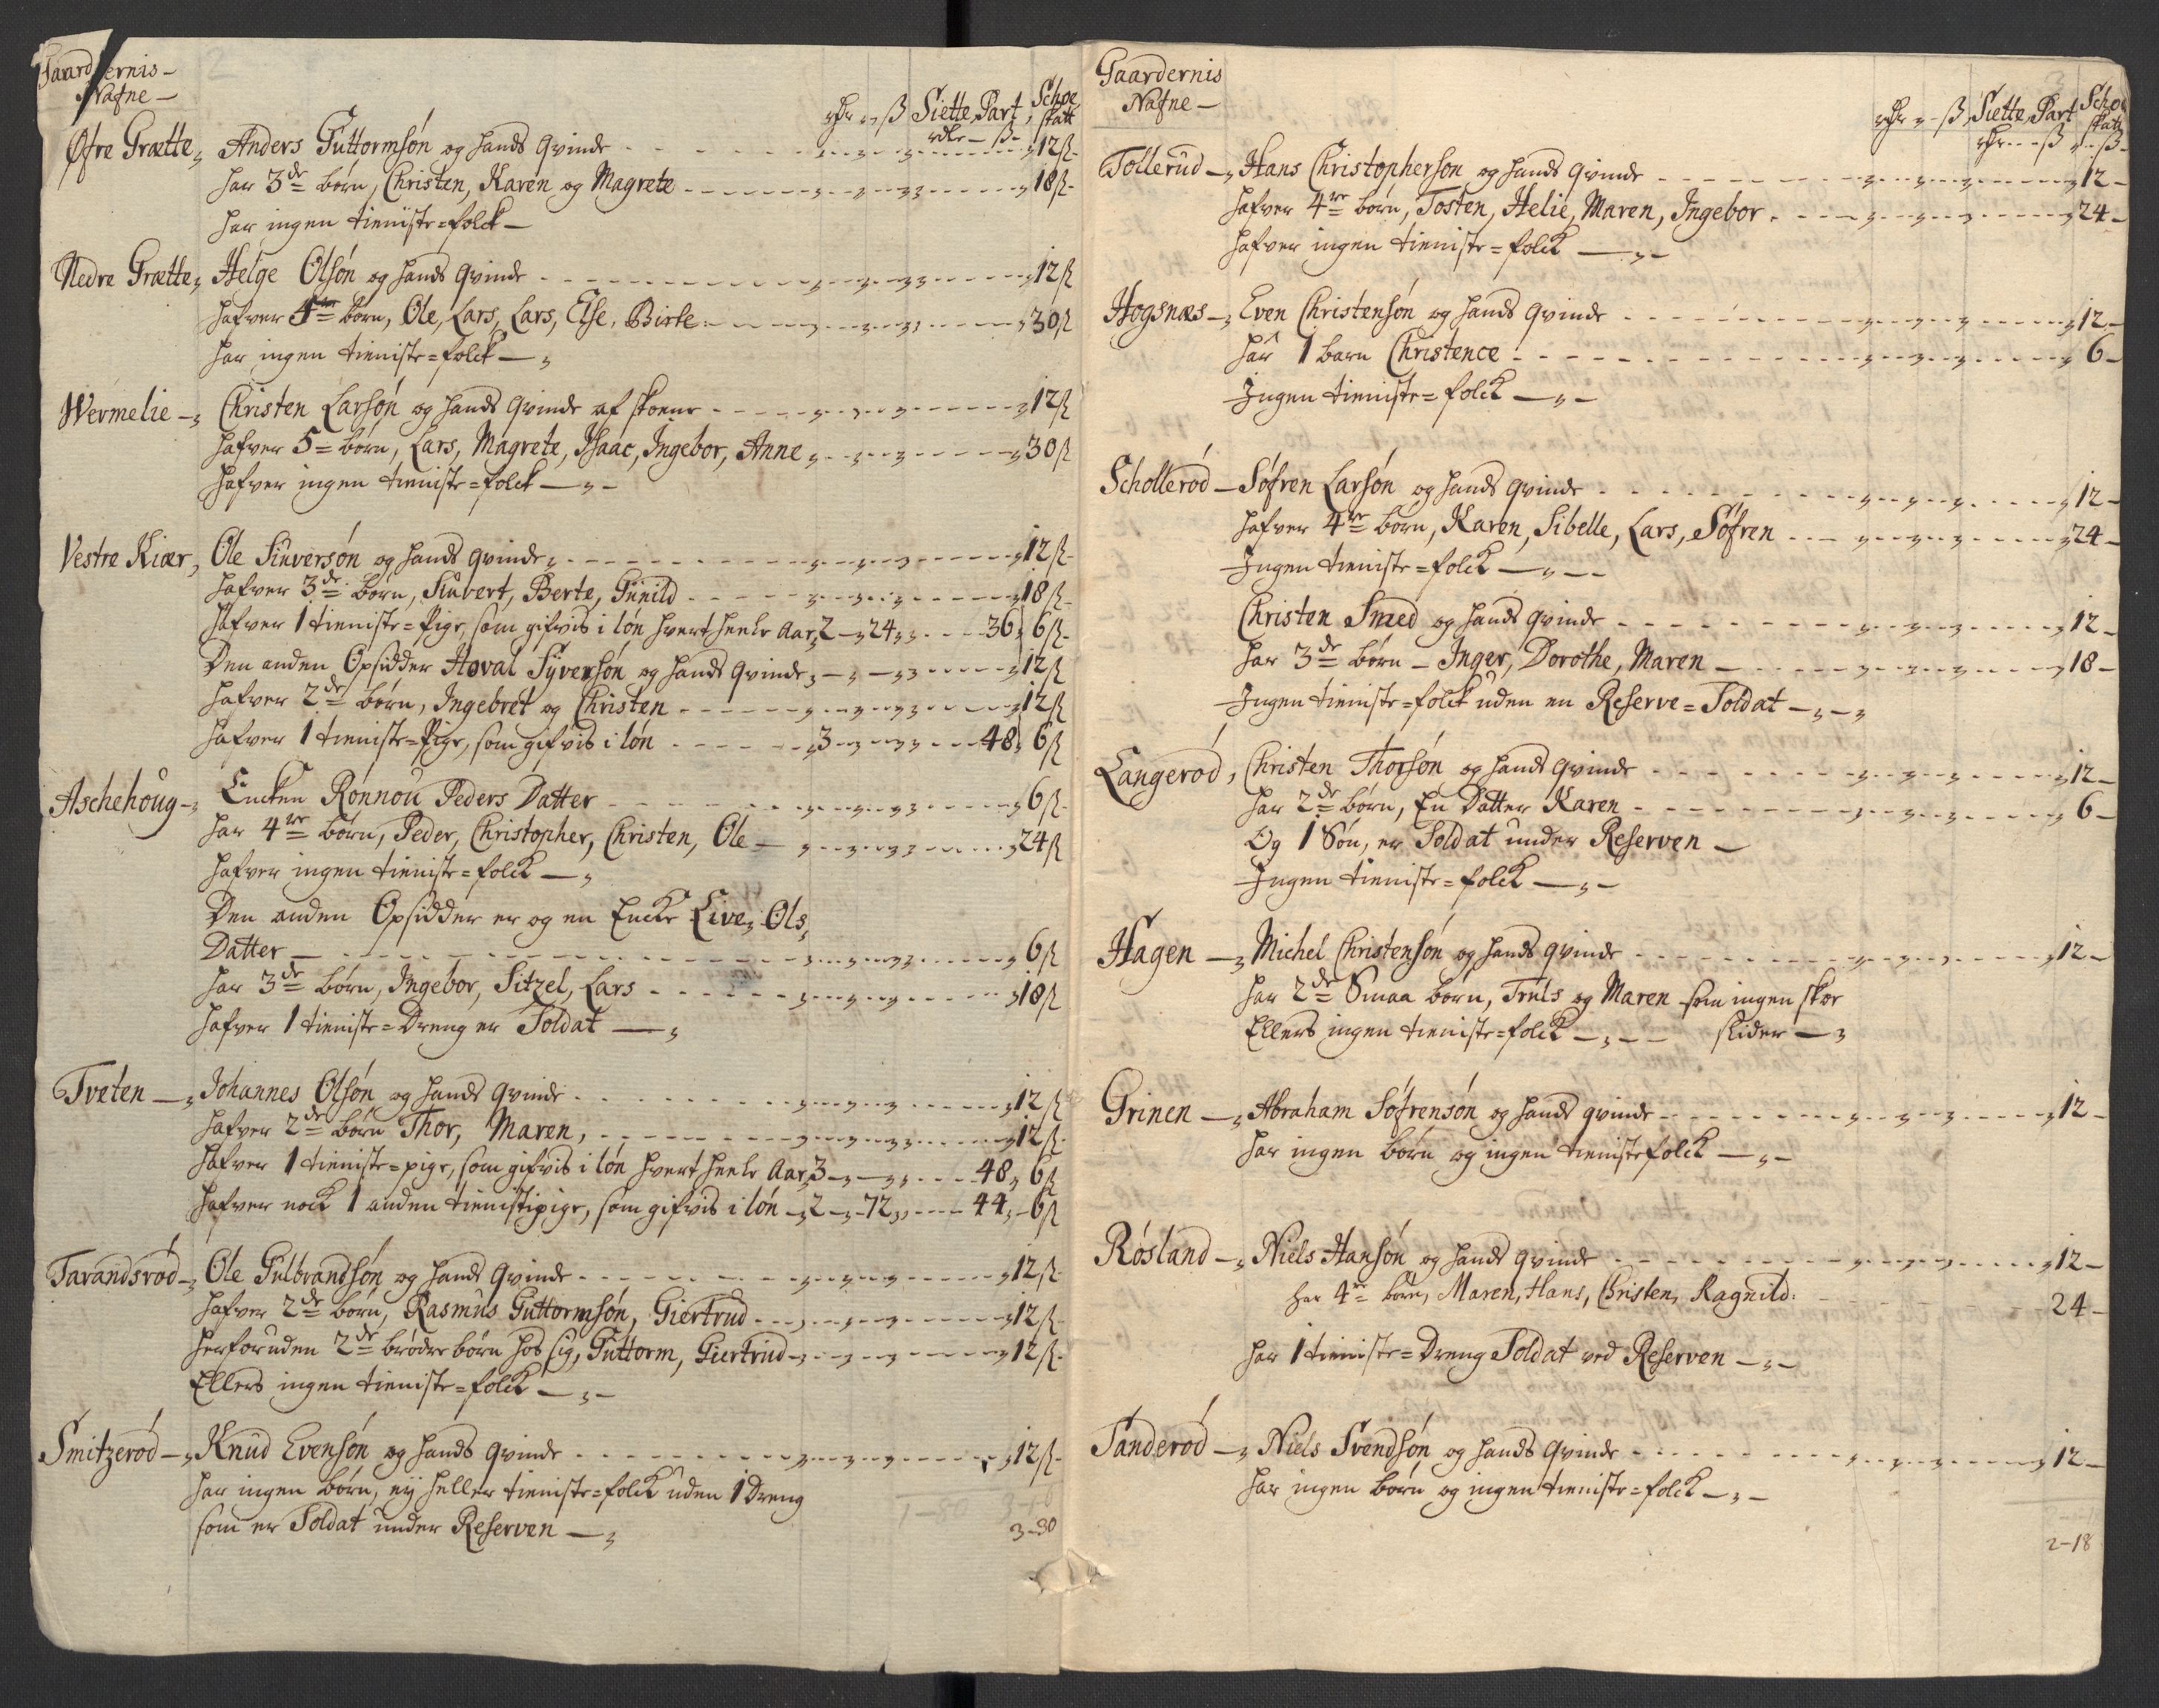 Gaardernis
Nafne
rdr ß Siette Part Schoe
rdr ß skatt
Øfre Grætte, Anders Guttormsøn og hands qvinde 12ß
har 3de börn, Christen, Karen og Magrete 18ß
har ingen tieniste=folck
Nedre Grætte, Helge Olsøn og hands qvinde 12ß
hafver börn, Ole, Lars, Lars, Else, Birte 30ß
har ingen tieniste=folck
Wermelie Christen Larsøn og hands qvinde af skoene 12ß
hafver 5 börn, Lars, Magrete, Isaac, Ingebor, Anne 30ß
hafver ingen tieniste=folck
Vestre Kiær, Ole Siuversøn og hands qvinde 12ß
hafver 3de börn, Siuvert, Berte, Gunild 18ß
hafver 1 tieniste=Pige, som gifvis i lön hvert heele Aar 2 24 36 6ß
Den anden Opsidder Hoval Syversøn og hands qvinde 12ß
hafver 2de börn, Ingebret og Christen 12ß
hafver 1 tieniste=Pige, som gifvis i lön 3 48 6ß
Aschehoug Encken Rönnou Peders Datter 6ß
har 4re börn, Peder, Christopher, Christen, Ole 24ß
hafver ingen tieniste=folck
Den anden Opsidder er og en Encke Live Ols
Datter 6ß
har 3de börn, Ingebor, Sitzel, Lars 18ß
hafver 1 tieniste=Dreng er Soldat
Tveten Johannes Olsøn og hands qvinde 12ß
hafver 2de börn Thor, Maren, 12ß
hafver 1 tieniste=pige, som gifvis i lön hvert heele Aar 3 48 6ß
hafver nock 1 anden tienistepige, som gifvis i lön 2 72 44 6ß
Tarandsröd Ole Gulbrandsøn og hands qvinde 12ß
hafver 2de börn, Rasmus Guttormsøn, Giertrud 12ß
herforuden 2de brödre börn hos sig, Guttorm, Giertrud 12ß
Ellers ingen tieniste=folck
Smitzeröd Knud Evensøn og hands qvinde 12ß
har ingen börn, ey heller tieniste=folck uden 1 Dreng
som er Soldat under Reserven
3-30
Gaardernis
Nafne
rdr ß Siette Part Schoe
rdr ß skatt ß
Tollerud Hans Christophersøn og hands qvinde 12
hafver 4re börn, Tosten, Helie, Maren, Ingebor 24
hafver ingen tieniste=folck
Hogsnæs Even Christensøn og hands qvinde 12
har 1 barn Christence 6
Ingen tieniste=folck
Scholleröd Söfren Larsøn og hands qvinde 12
hafver 4re börn, Karen, Sibelle, Lars, Söfren 24
Ingen tieniste=folck
Christen Smed og hands qvinde 12
har 3de börn Inger, Dorothe, Maren 18
Ingen tieniste=folck uden en Reserve=Soldat
Langeröd, Christen Thorsøn og hands qvinde 12
har 2de börn, En Datter Karen 6
Og 1 Sön, er Soldat under Reserven
Ingen tieniste=folck
Hagen Michel Christensøn og hands qvinde 12
har 2de Smaa börn, Truls og Maren som ingen skoe
Ellers ingen tieniste=folck slider
Grinen Abraham Söfrensøn og hands qvinde 12
har ingen börn og ingen tienistefolck
Rösland Niels Hansøn og hands qvinde 12
har 4re börn, Maren, Hans, Christen, Ragnild: 24
har 1 tieniste=Dreng Soldat ved Reserven
Sanderöd Niels Svendsøn og hands qvinde 12
har ingen börn og ingen tieniste=folck
2-18